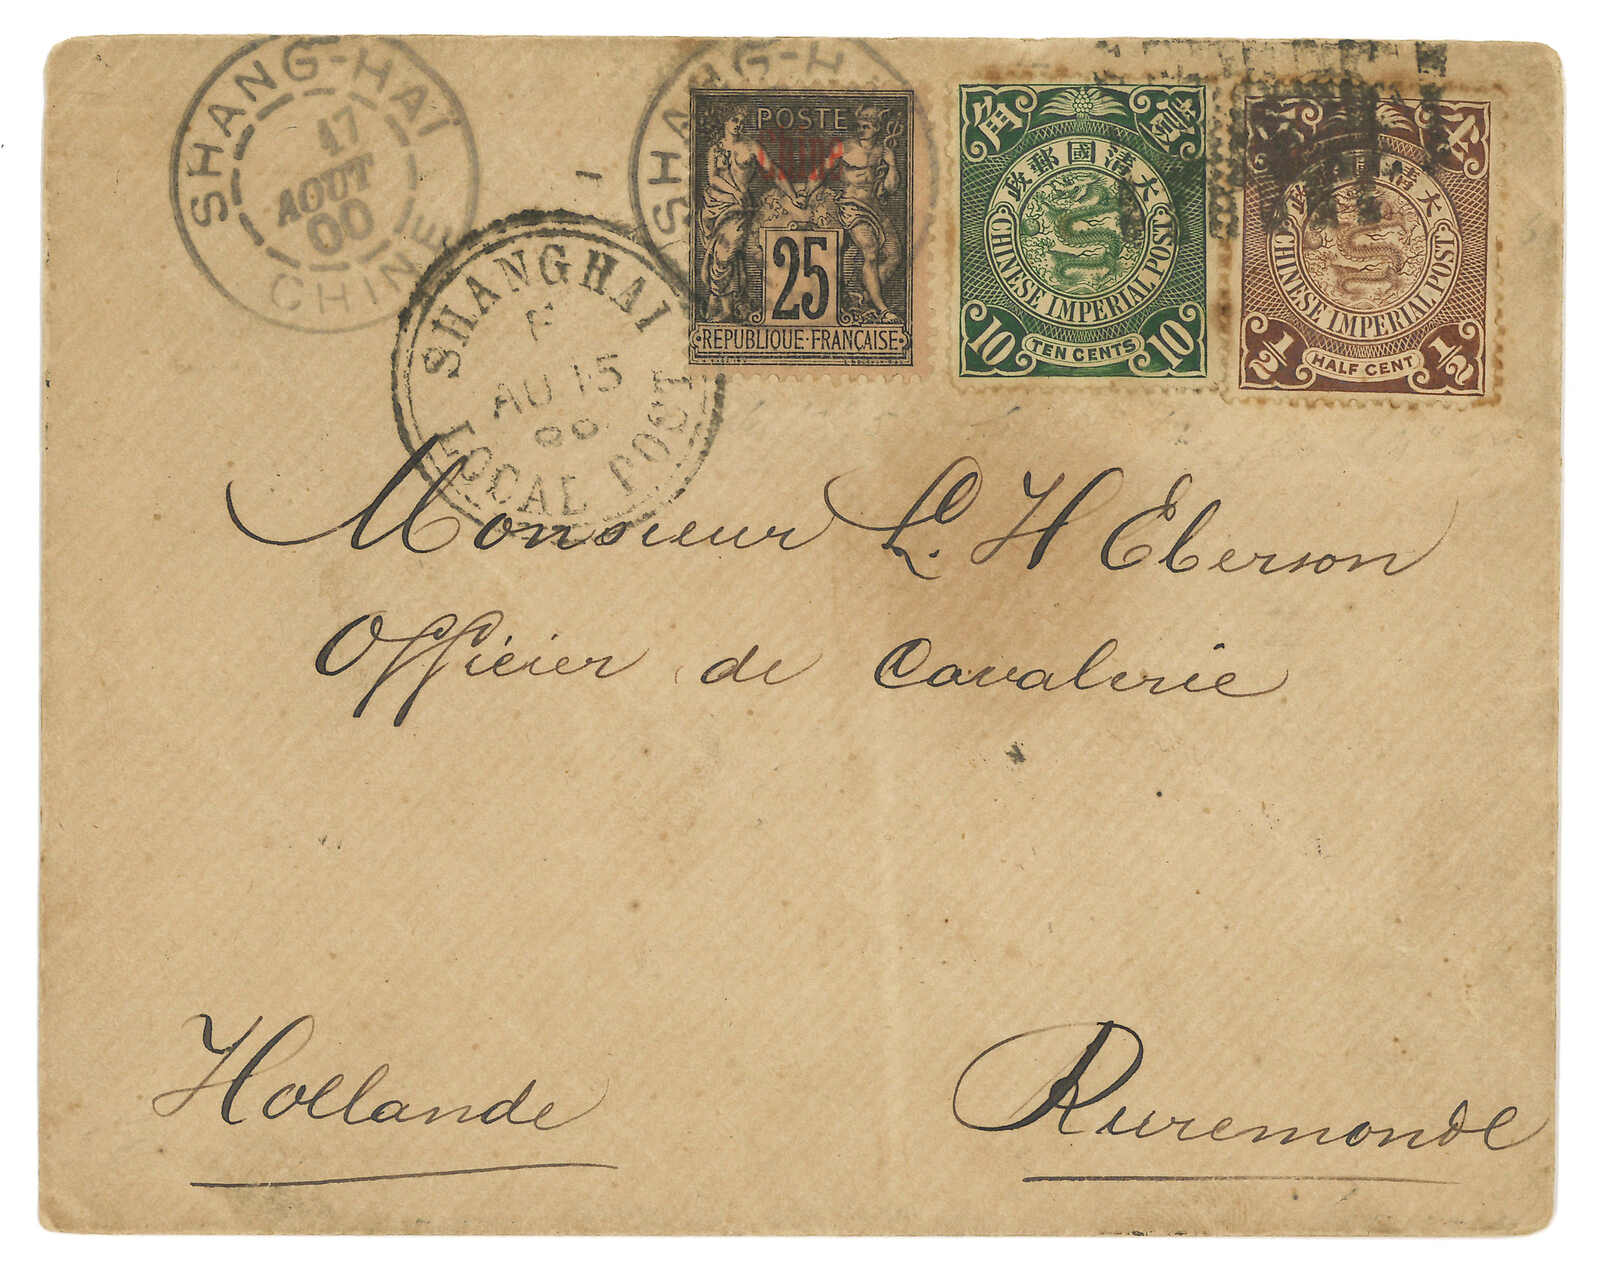 SHANG-HAÏ
17
AOUT
00
CHINE
SHANG-H
SHANGHAI
AU 15
00
LOCAL POST
POSTE
Chine
25
REPUBLIQUE·FRANÇAISE
角 壹
大清國郵政
CHINESE IMPERIAL POST
10 TEN CENTS 10
大清國郵政
CHINESE IMPERIAL POST
½ HALF CENT ½
Monsieur L. H Eberson
Officier de Cavalerie
Hollande
Ruremonde